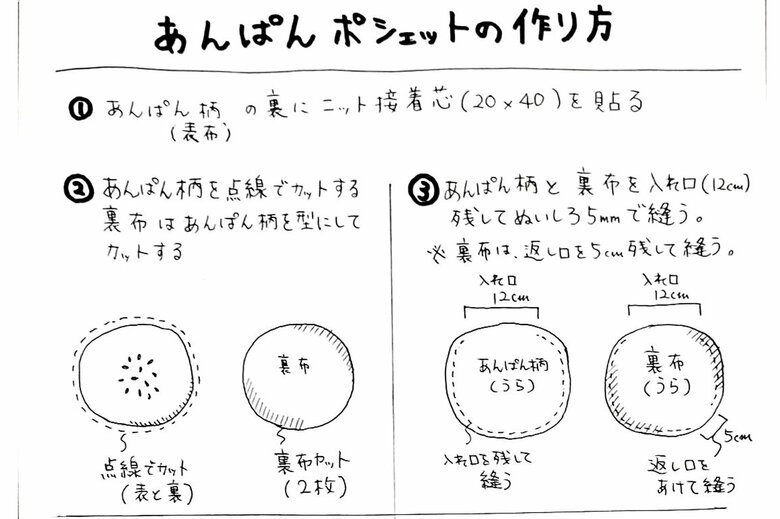 あんぱんポシェットの作り方
① あんぱん柄の裏にニット接着芯(20×40)を貼る
(表布)
② あんぱん柄を点線でカットする
裏布はあんぱん柄を型にして
カットする
裏布
点線でカット
(表と裏)
裏布カット
(2枚)
③ あんぱん柄と裏布を入れ口(12cm)
残してぬいしろ5mmで縫う。
※裏布は、返し口を5cm残して縫う。
入れ口
12cm
入れ口
12cm
あんぱん柄
(うら)
裏布
(うら)
5cm
入れ口を残して
縫う
返し口を
あけて縫う